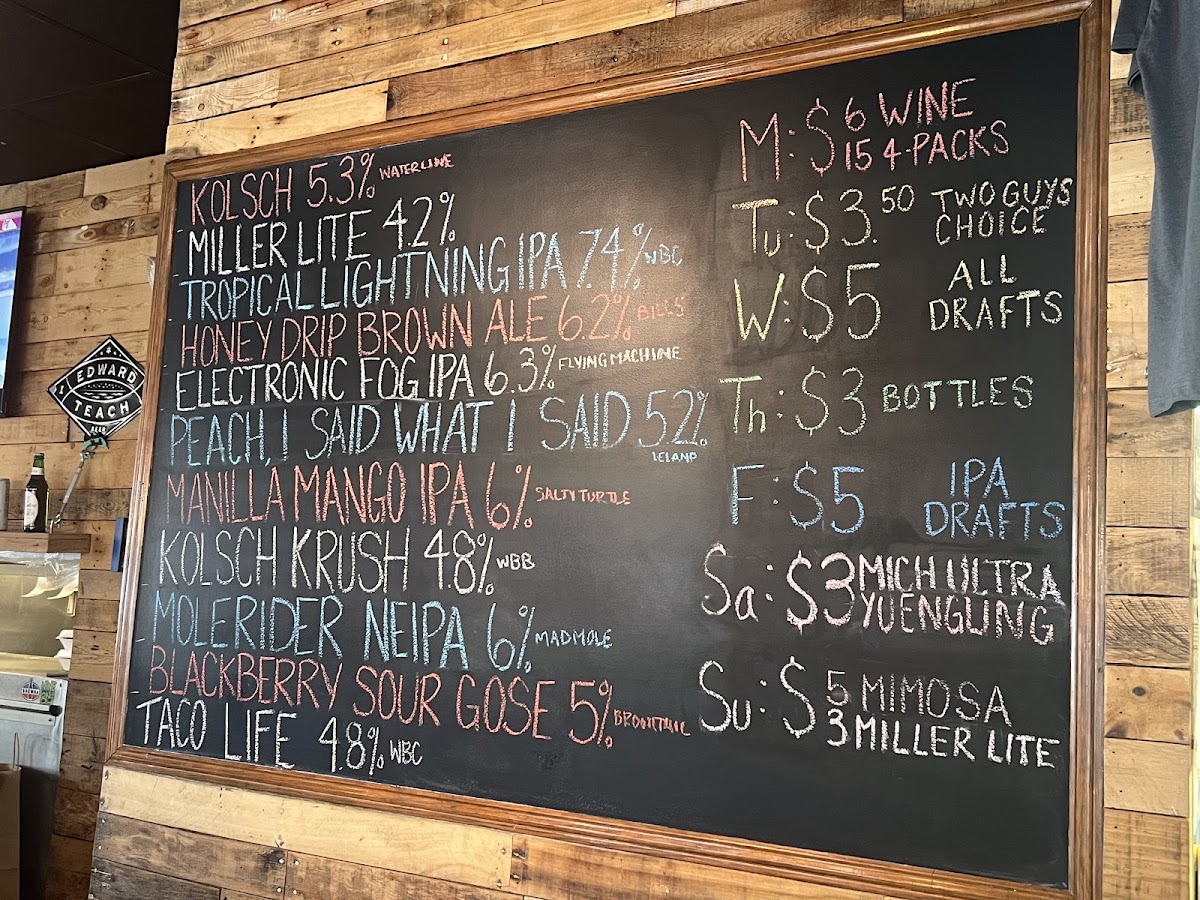 KOLSCH 5.3% WATERLINE
MILLER LITE 4.2%
TROPICAL LIGHTNING IPA 7.4% WBC
HONEY DRIP BROWN ALE 6.2% BILLS
ELECTRONIC FOG IPA 6.3% FLYING MACHINE
PEACH, I SAID WHAT I SAID 5.2%
LELAND
MANILLA MANGO IPA 6% SALTY TURTLE
KOLSCH KRUSH 4.8% WBB
MOLERIDER NEIPA 6% MAD MOLE
BLACKBERRY SOUR GOSE 5%
TACO LIFE 4.8% WBC
M: $6 WINE
15 4-PACKS
Tu: $3.50 TWO GUYS
CHOICE
W: $5 ALL
DRAFTS
Th: $3 BOTTLES
F: $5 IPA
DRAFTS
Sa: $3 MICH ULTRA
YUENGLING
Su: $5 MIMOSA
3 MILLER LITE
EDWARD
TEACH
BEER